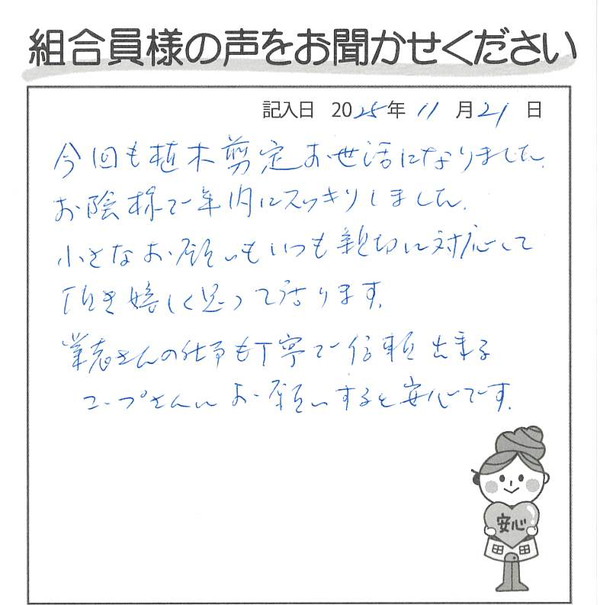 組合員様の声をお聞かせください
記入日 2025年 11月21日
今回も植木剪定お世話になりました。
お陰様で年内にスッキリしました。
小さなお願いもいつも親切に対応して
頂き嬉しく思って居ります。
業者さんの仕事も丁寧で信頼出来る
コープさんにお願いすると安心です。
安心